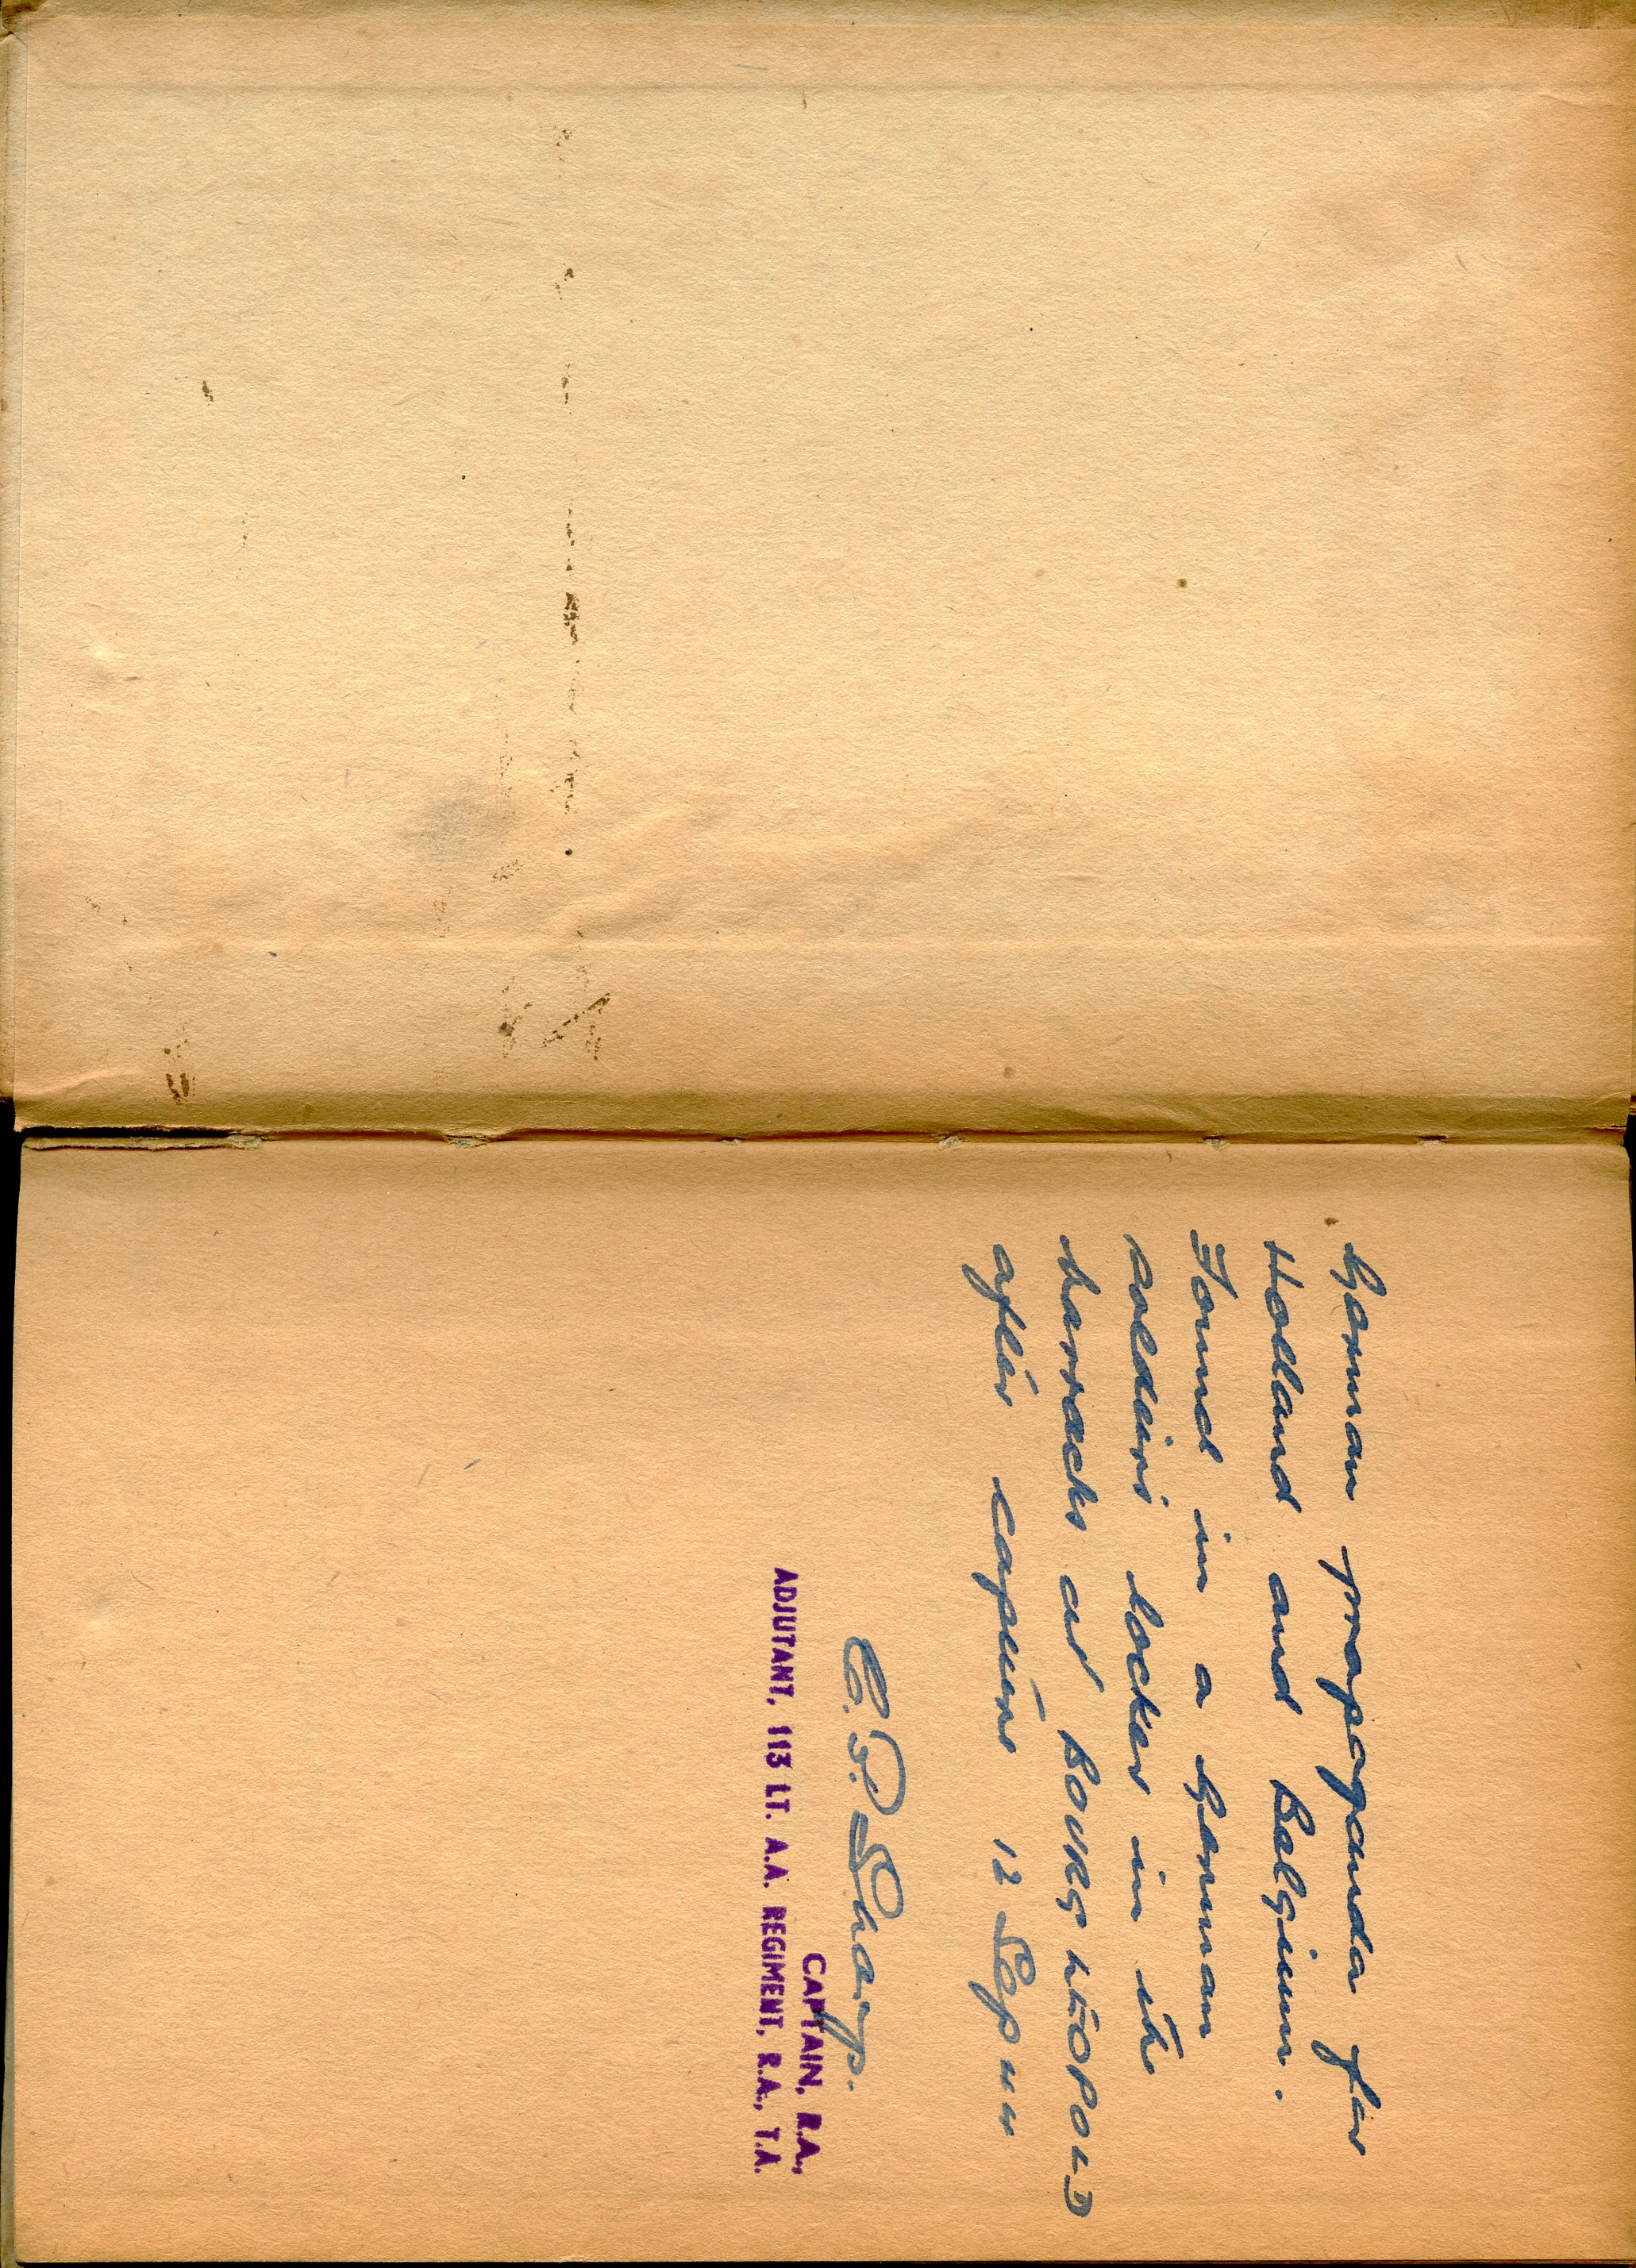 German propaganda for
Holland and Belgium.
Found in a German
soldiers locker in the
barracks at BOURG LÉOPOLD
after capture 12 Sep 44
C.P. Sharp.
CAPTAIN, R.A.,
ADJUTANT, 113 LT. A.A. REGIMENT, R.A., T.A.